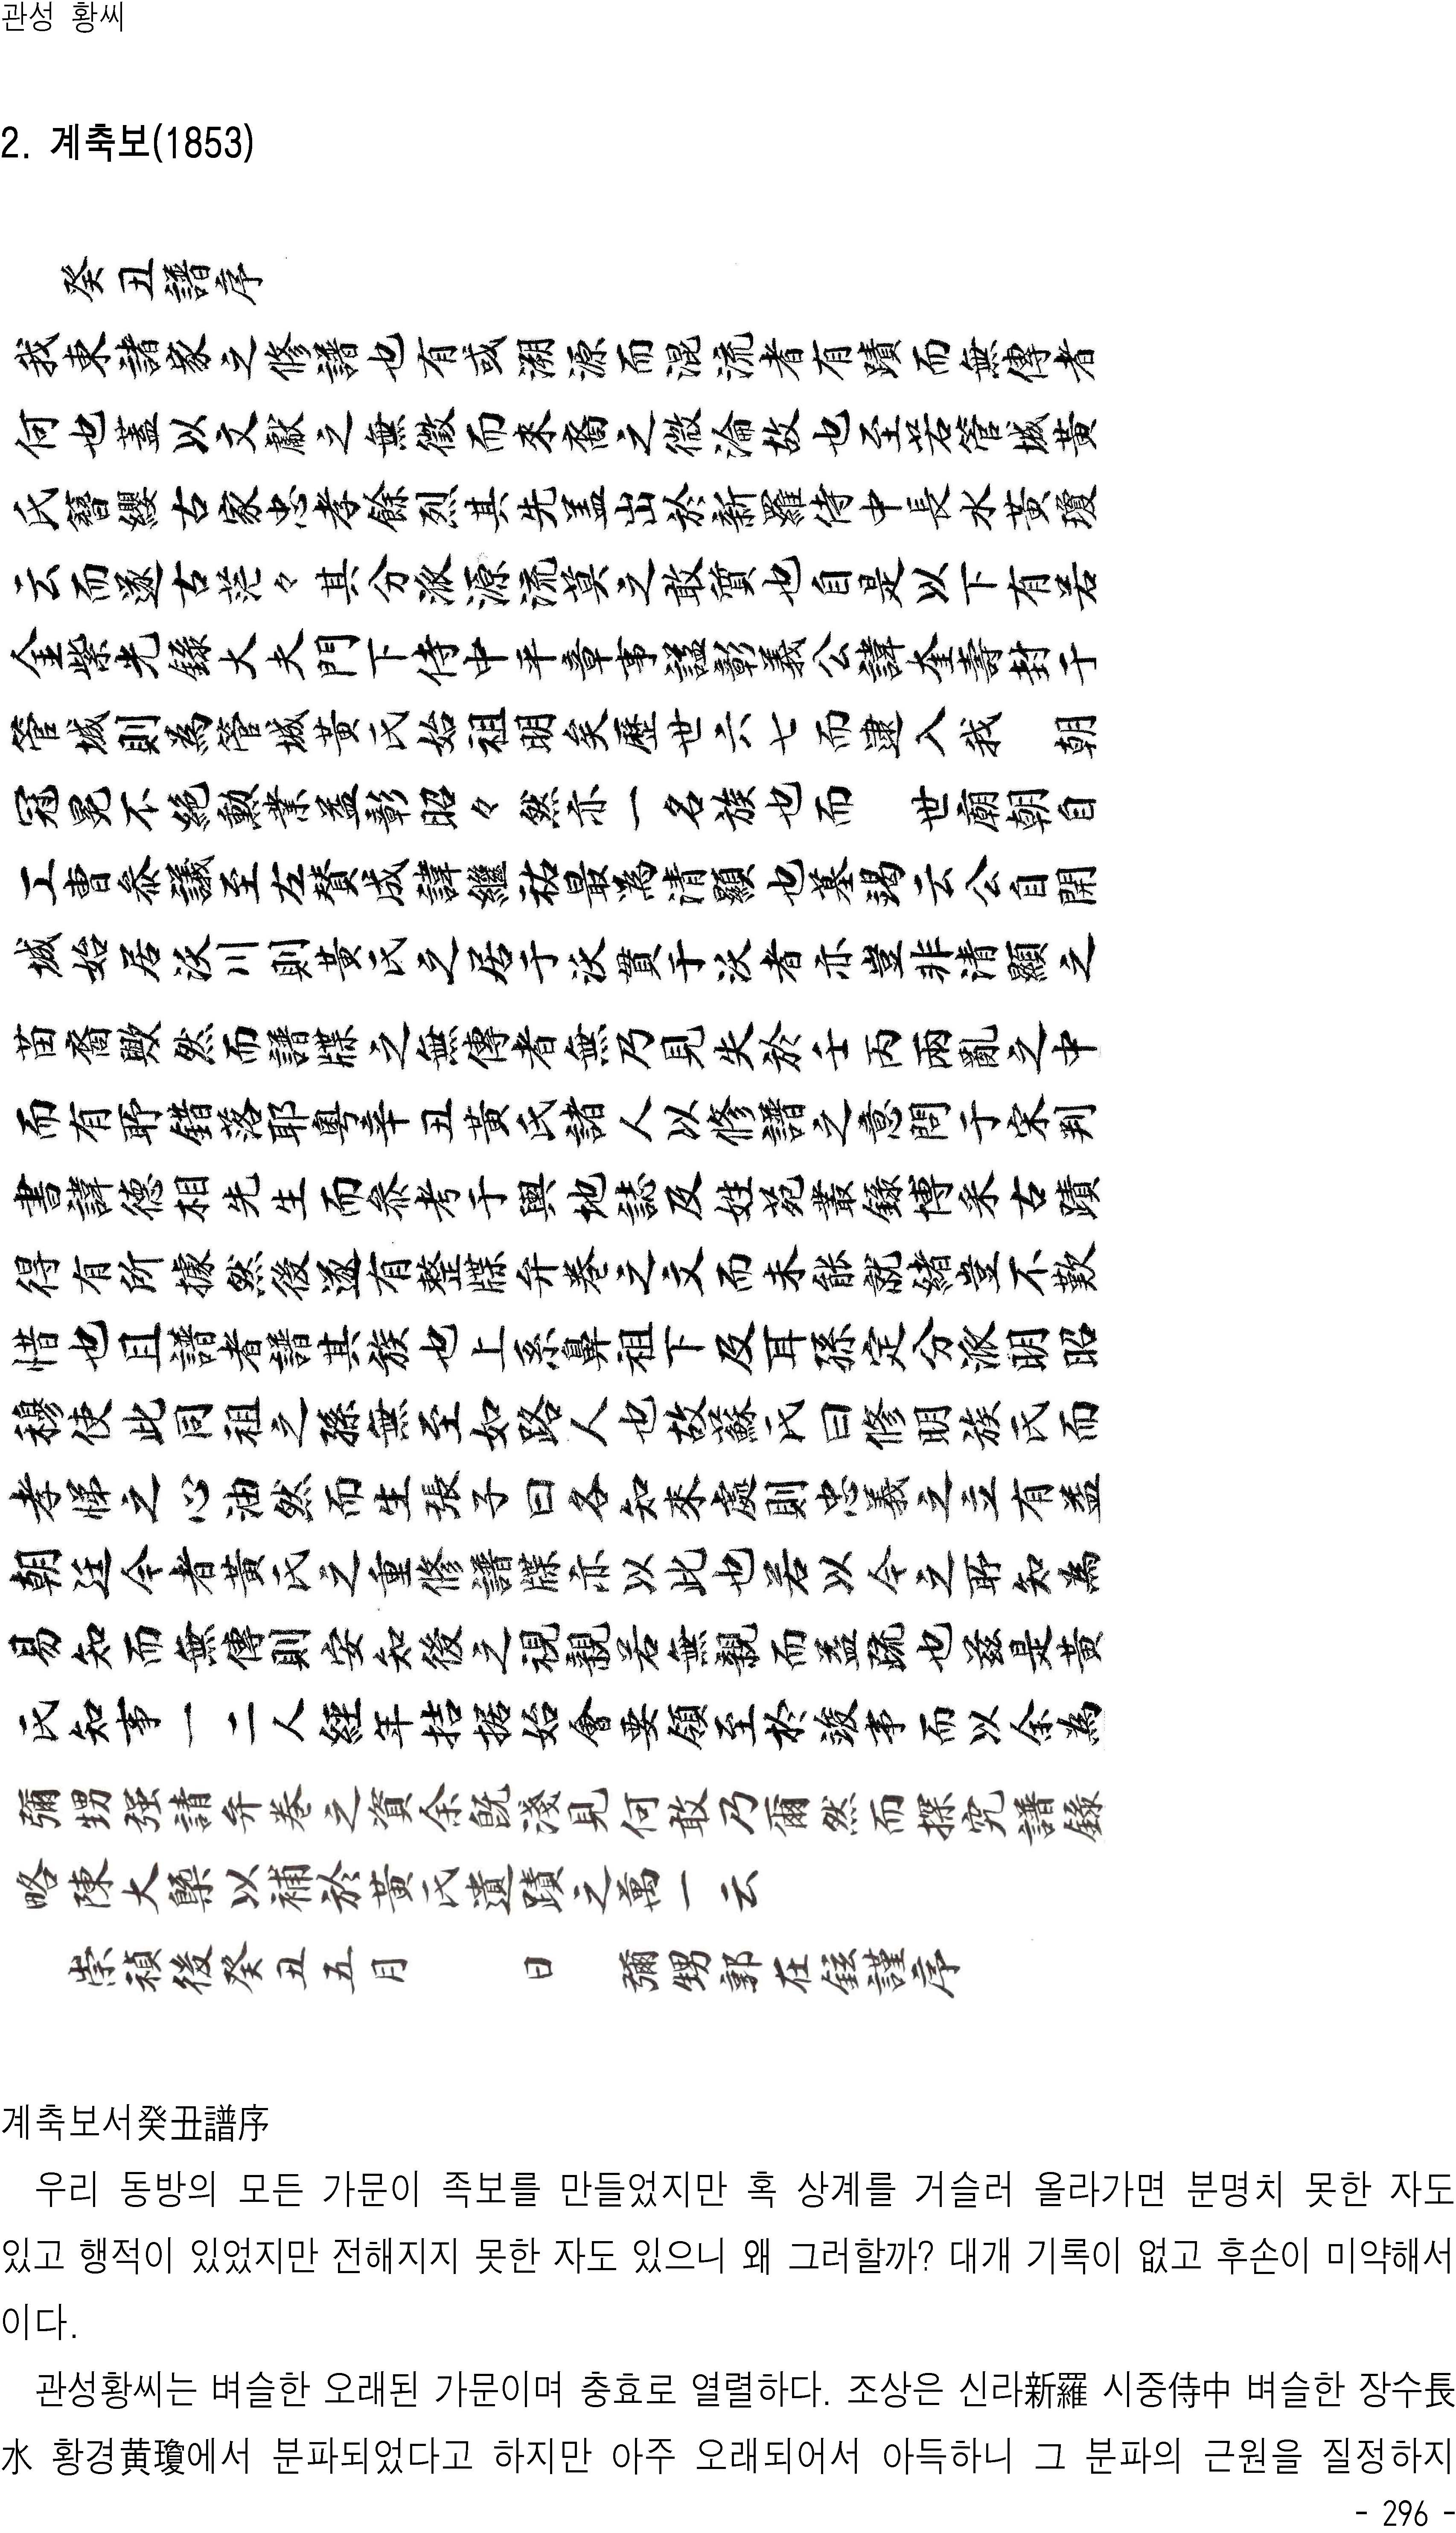 관성 황씨
2. 계축보(1853)
癸丑譜序
我東諸家之修譜也有或溯源而混流者有蹟而無傳者
何也蓋以文獻之無徵而來裔之微淪故也至若管城黃
氏簪纓古家忠孝餘烈其先盖出於新羅侍中長水黃瓊
云而邃古茫々其分派源流莫之敢質也自是以下有若
金紫光錄大夫門下侍中平章事諡彰義公諱奎壽封于
管城則為管城黃氏始祖明矣歷世六七而逮入我 朝
冠冕不絶勳業益彰昭々然亦一名族也而 世廟朝自
工曹叅議至左贊成諱繼祐最為清顯也墓碣云公自開
城始居沃川則黃氏之居于沃貫于沃者亦豈非清顯之
苗裔歟然而譜牒之無傳者無乃見失於壬丙兩亂之中
而有所錯落耶粵辛丑黃氏諸人以修譜之意問于宋判
書諱德相先生而叅考于輿地誌及姓苑叢錄博采古蹟
得有所據然後遂有整牒弁卷之文而未能就緖豈不歎
惜也且譜者譜其族也上系鼻祖下及耳孫定分派明昭
穆使此同祖之孫無至如路人也故蘇氏曰修明族氏而
孝悌之心油然而生張子曰各知來處則忠義之立有益
朝廷今者黃氏之重修譜牒亦以此也若以今之所知為
易知而無傳則安知後之視親若無親而益疏也玆是黃
氏知事一二人經年拮据始會要領至於竣事而以余為
彌甥强請弁卷之資余旣淺見何敢乃爾然而探究譜錄
略陳大槩以補於黃氏遺蹟之萬一云
崇禎後癸丑五月 日 彌甥郭在鉉謹序
계축보서癸丑譜序
우리 동방의 모든 가문이 족보를 만들었지만 혹 상계를 거슬러 올라가면 분명치 못한 자도
있고 행적이 있었지만 전해지지 못한 자도 있으니 왜 그러할까? 대개 기록이 없고 후손이 미약해서
이다.
관성황씨는 벼슬한 오래된 가문이며 충효로 열렬하다. 조상은 신라新羅 시중侍中 벼슬한 장수長
水 황경黄瓊에서 분파되었다고 하지만 아주 오래되어서 아득하니 그 분파의 근원을 질정하지
- 296 -